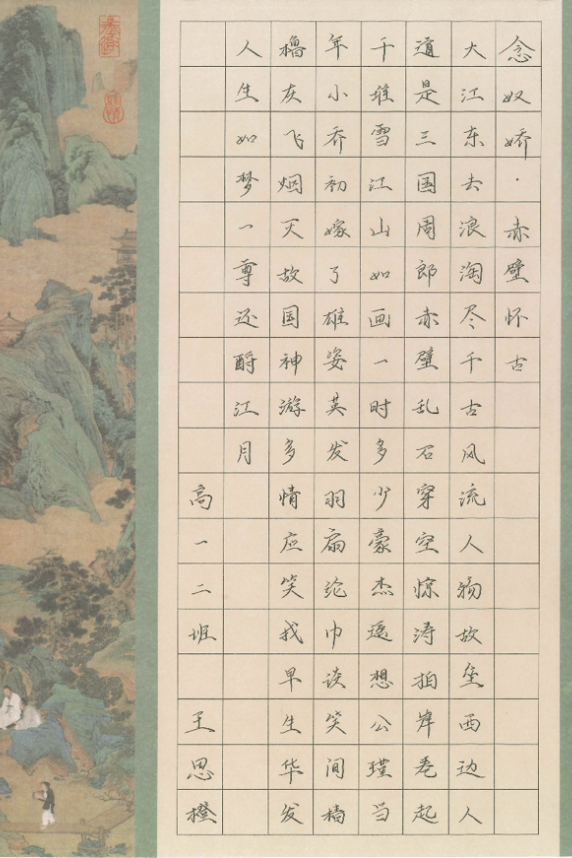 念奴娇·赤壁怀古
大江东去浪淘尽千古风流人物故垒西边人
道是三国周郎赤壁乱石穿空惊涛拍岸卷起
千堆雪江山如画一时多少豪杰遥想公瑾当
年小乔初嫁了雄姿英发羽扇纶巾谈笑间樯
橹灰飞烟灭故国神游多情应笑我早生华发
人生如梦一尊还酹江月
高一二班 王思橙